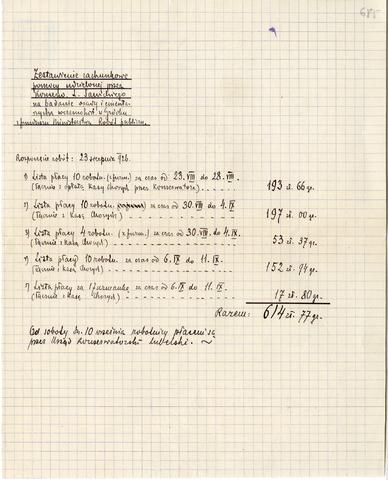 685
Zestawienie rachunkowe
pomocy udzielonej przez
Konserw. L. Sawickiego
na badanie osady i cmenta-
rzyska wczesnohist. w Gródku
z funduszu Ministerstwa Robót publiczn.
Rozpoczęcie robót: 23 sierpnia 926.
1) Lista płacy 10 robotn. (z furm.) za czas od 23.VIII do 28.VIII.
(Łącznie z opłatą Kasy Chorych przez Konserwatora) . . . . . . 193 zł. 66 gr.
2) Lista płacy 10 robotn. za czas od 30.VIII do 4.IX
(Łącznie z Kasą Chorych) . . . . . . 197 zł. 00 gr.
3) Lista płacy 4 robotn. (z furm.) za czas od 30.VIII do 4.IX.
(Łącznie z Kasą Chorych) . . . . . . 53 zł. 37 gr.
Lista płacy 10 robotn. za czas od 6.IX do 11.IX.
(Łącznie z Kasą Chorych) . . . . . . 152 zł. 94 gr.
Lista płacy za 1 furmankę za czas od 6.IX do 11.IX.
(Łącznie z Kasą Chorych) . . . . . . 17 zł. 80 gr.
Razem: 614 zł. 77 gr.
Od soboty dn. 10 września robotnicy płaceni są
przez Urząd Konserwatorski Lubelski.